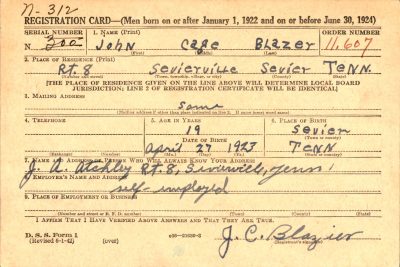 N-312
REGISTRATION CARD—(Men born on or after January 1, 1922 and on or before June 30, 1924)
SERIAL NUMBER 1. NAME (Print) ORDER NUMBER
N 300 John Cape Blazer 11,607
(First) (Middle) (Last)
2. PLACE OF RESIDENCE (Print)
Rt. 8 Sevierville Sevier Tenn.
(Number and street) (Town, township, village, or city) (County) (State)
[THE PLACE OF RESIDENCE GIVEN ON THE LINE ABOVE WILL DETERMINE LOCAL BOARD
JURISDICTION; LINE 2 OF REGISTRATION CERTIFICATE WILL BE IDENTICAL]
3. MAILING ADDRESS
Same
(Mailing address if other than place indicated on line 2. If same insert word same)
4. TELEPHONE 5. AGE IN YEARS 6. PLACE OF BIRTH
19 Sevier
DATE OF BIRTH
April 27 1923 Tenn
(Exchange) (Number) (Mo.) (Day) (Yr.) (State or country)
7. NAME AND ADDRESS OF PERSON WHO WILL ALWAYS KNOW YOUR ADDRESS
J. A. Atchley Rt. 8, Sevierville, Tenn.
8. EMPLOYER'S NAME AND ADDRESS
self-employed
9. PLACE OF EMPLOYMENT OR BUSINESS
(Number and street or R. F. D. number) (Town) (County) (State)
I AFFIRM THAT I HAVE VERIFIED ABOVE ANSWERS AND THAT THEY ARE TRUE.
D. S. S. Form 1
(Revised 6-1-42) (over) J. C. Blazier
(Registrant's signature)